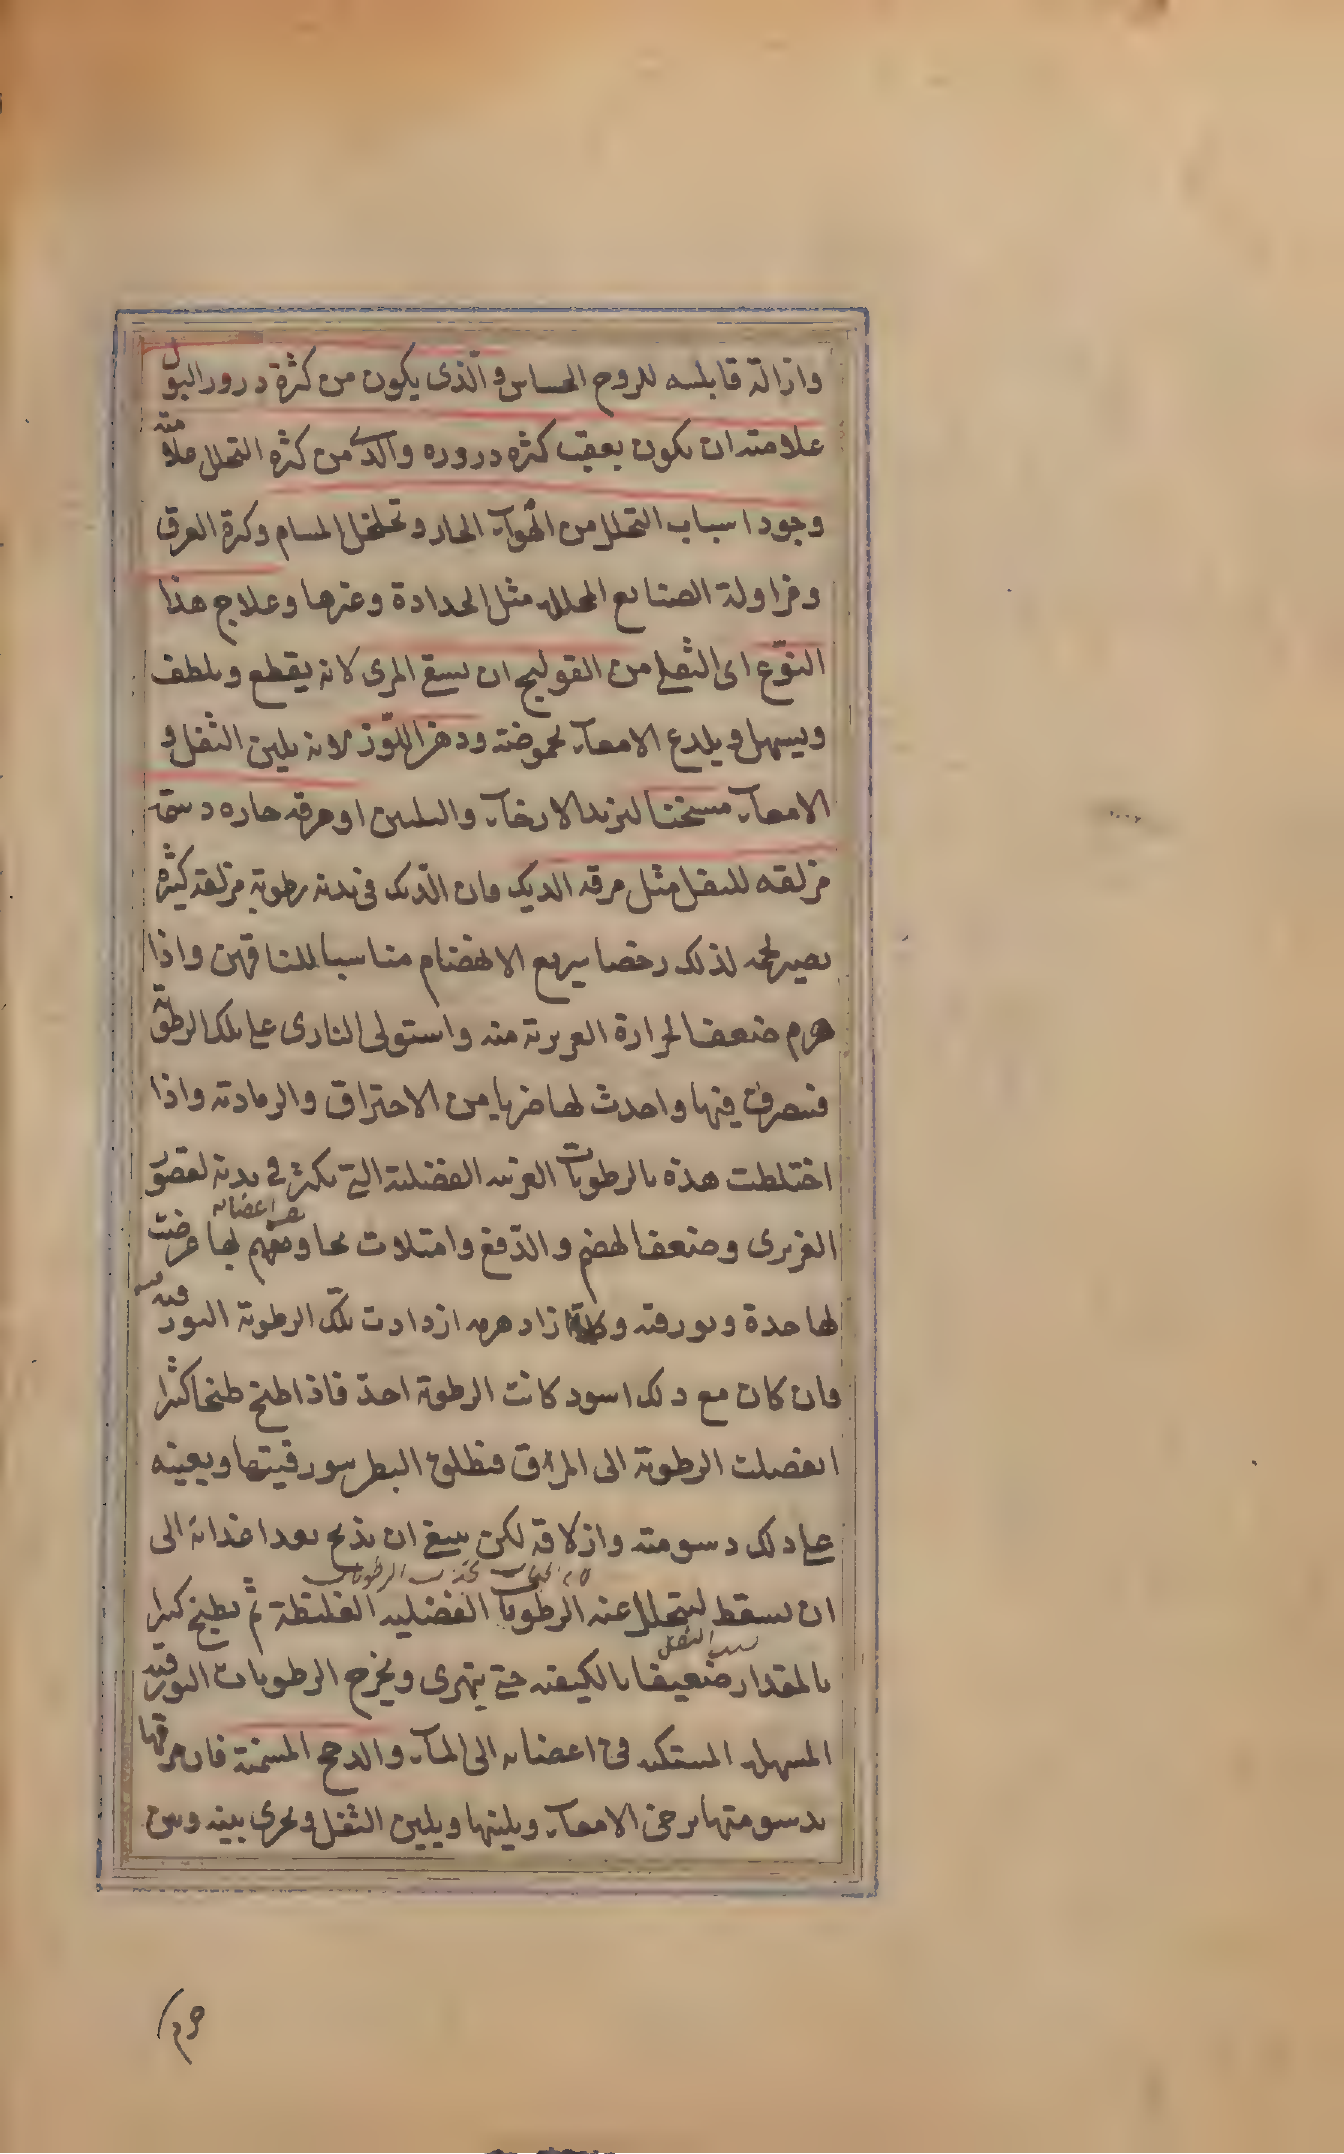 وازالة قابلیته للروح الحساس والذی یکون من کثرة درور البول
علامته ان یکون بعقب کثره دروره والذی من کثره التحلل علامته
وجود اسباب التحلل من الهوآء الحار وتخلخل المسام وکثرة العرق
ومزاولة الصنایع المحلله مثل الحدادة وغیرها وعلاج هذا
النوع ای الثفلی من القولنج ان یسقی المری لانه یقطع ویلطف
ویسهل ویلدع الامعآء بحموضته ودهن اللوز لانه یلین الثفل و
الامعآء مسخنا لیزید الارخآء والتلیین او مرقه حاره دسمة
مزلقه للثفل مثل مرقه الدیک فان الدیک فی بدنه رطوبة مزلقة کثیره
یصیر لحمه لذلک رخصا سریع الانهضام مناسبا للناقهین واذا
هرم ضعف الحرارة الغریزیة منه واستولی الناری علی تلک الرطوبة
فتصرف فیها واحدث لها ضربا من الاحتراق والرمادیة واذا
اختلطت هذه بالرطوبات الغریبه الفضلیة التی تکثر فی بدنه لقصور
الغریزی وضعف الهضم والدفع وامتلات بها اعضائه عرضت
لها حدة وبورقیه وکلما زاد هرمه ازدادت تلک الرطوبة البورقیه
فان کان مع ذلک اسود کانت الرطوبة احد فاذا طبخ طبخا کثیرا
انفصلت الرطوبة الی المرق فتطلق البطن ببورقیتها ویعینه
علی ذلک دسومته وازلاقه لکن ینبغی ان یذبح بعد اغذائه الی
ان یسقط لیتحلل عنه الرطوبات الفضلیه الغلیظة ثم یطبخ کثیرا
بالمقدار ضعیفا بالکیفیه حتی یتهری ویخرج الرطوبات البورقیه
المسهله المستکنه فی اعضائه الی المآء والدجج المسمنة فان مرقها
بدسومتها یرخی الامعآء ویلینها ویلین الثفل ویجری بینه وبین